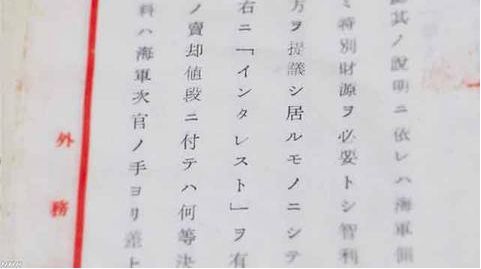 其ノ說明ニ依レハ海軍側
ミ特別財源ヲ必要トシ智利
方ヲ提議シ居ルモノニシテ
右ニ「インタレスト」ヲ有
ノ賣却値段ニ付テハ何等決
料ハ海軍次官ノ手ヨリ差上
外務
NHK